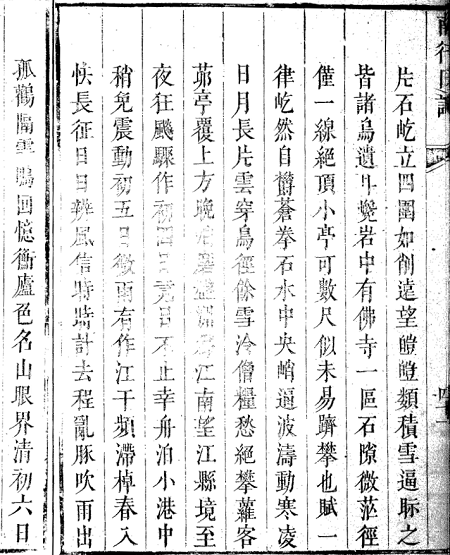 片石屹立四圍如削遠望皚皚類積雪逼眎之
皆諸鳥遺斗甃岩中有佛寺一區石隙微莝徑
僅一線絕頂小亭可數尺似未易躋攀也賦一
律屹然自欝蒼拳石水中央峭逼波濤動寒凌
日月長片雲穿鳥徑餘雪冷僧糧愁絕攀蘿客
茆亭覆上方晚江南望江縣境至
夜狂颷驟作初四日竟日不止幸舟泊小港中
稍免震動初五日微雨有作江干頻滯棹春入
快長征日日辨風信時時計去程亂豚吹雨出
孤鸛雪回憶衡廬色名山眼界清初六日